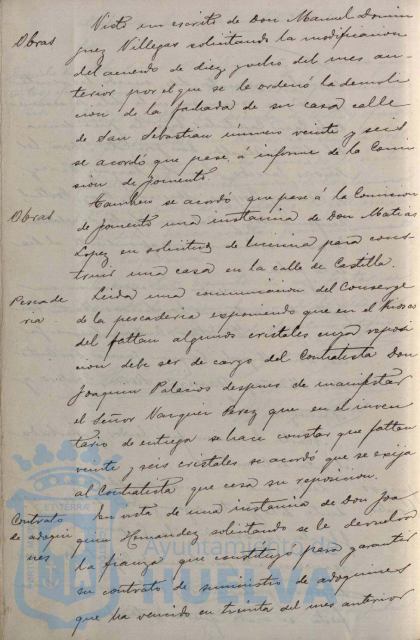 Visto un escrito de Don Manuel Domin
Obras
guez Villegas solicitando la modificacion
del acuerdo de diez y ocho del mes an-
terior por el que se le ordenó la demoli
cion de la fachada de su casa calle
de San Sebastian número veinte y seis
se acordó que pase á informe de la Comi
sion de fomento
Obras
Tambien se acordó que pase á la Comision
de fomento una instancia de Don Matias
Lopez en solicitud de licencia para cons
truir una casa en la calle de Castilla.
Pescade
ria
Leida una comunicacion del Conserge
de la pescaderia exponiendo que en el kiosco
del faltan algunos cristales cuya reposi
cion debe ser de cargo del Contratista Don
Joaquin Palacios despues de manifestar
el Señor Vazquez Perez que en el inven
tario de entrega se hace constar que faltan
veinte y seis cristales se acordó que se exija
al Contratista que su reposicion.
Contrato
de adoqui
nes
En vista de una instancia de Don Joa
quin Hernandez solicitando se le devuelva
la fianza que constituyó para garantir
su contrato de suministro de adoquines
que ha vencido en treinta del mes anterior
Ayuntamiento de
HUELVA